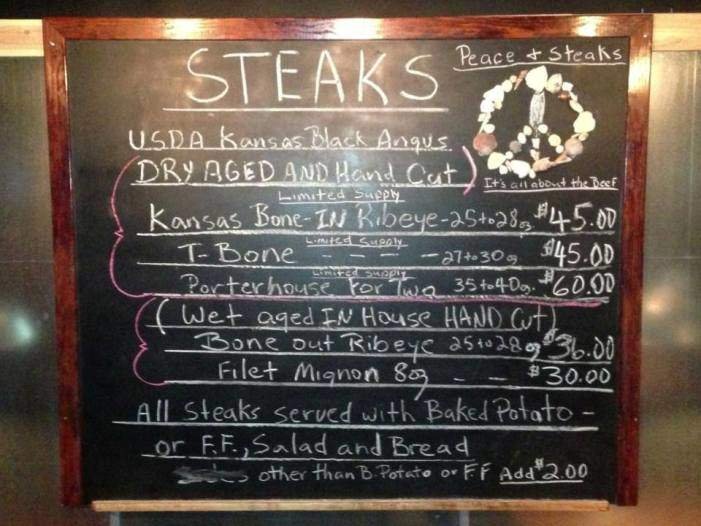 STEAKS
Peace + Steaks
USDA Kansas Black Angus
It's all about the Beef
DRY AGED AND Hand Cut
Limited Supply
Kansas Bone-IN Ribeye-25to28oz. $45.00
Limited Supply
T-Bone - - - - 27to30oz $45.00
Limited Supply
Porterhouse For Two 35to40oz. $60.00
(Wet aged IN House HAND Cut)
Bone out Ribeye 25to28oz $36.00
Filet Mignon 8oz - - $30.00
All Steaks served with Baked Potato-
or F.F., Salad and Bread
other than B.Potato or F.F Add $2.00